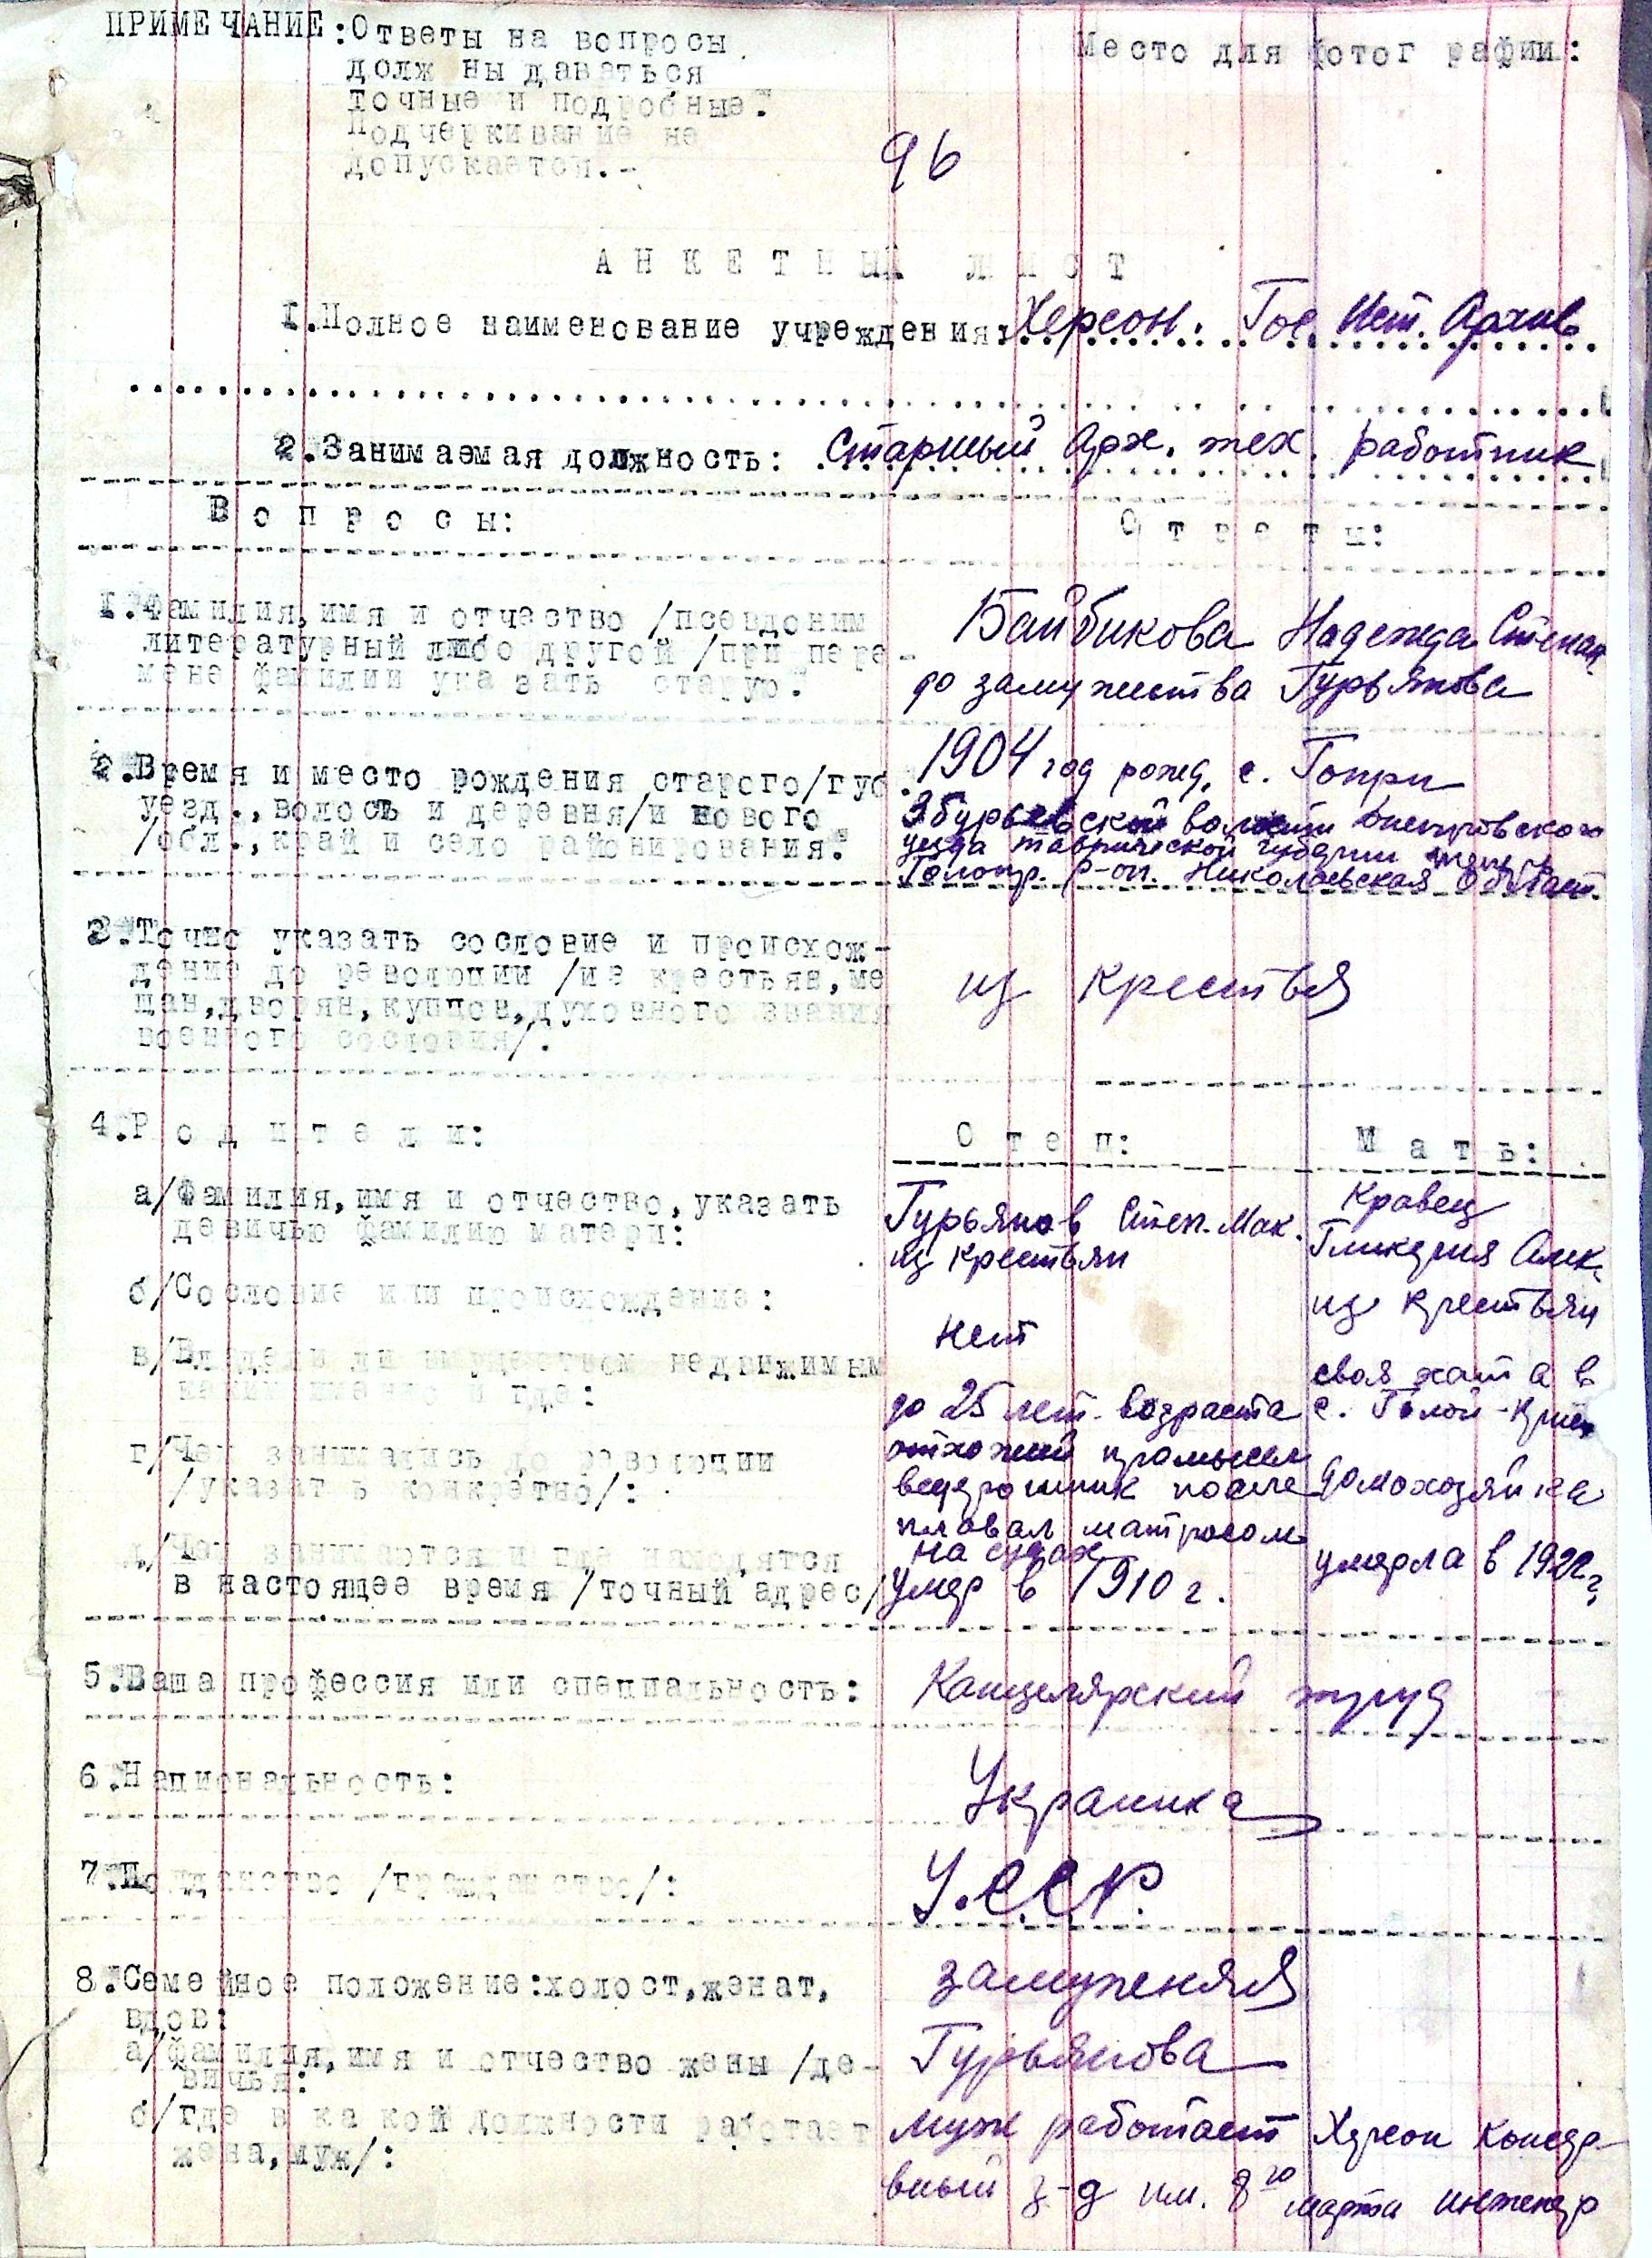 ПРИМЕЧАНИЕ: Ответы на вопросы
должны даваться
точные и подробные.
Подчеркивание не
допускается.-
Место для фотографии:
96
АНКЕТНЫЙ ЛИСТ
1. Полное наименование учреждения: Херсон. Гос. Ист. Архив
2. Занимаемая должность: Старший Арх. тех. работник
Вопросы: Ответы:
1. Фамилия, имя и отчество /псевдоним
литературный либо другой /при пере-
мене фамилии указать старую.
Байбикова Надежда Степан.
до замужества Гурьянова
2. Время и место рождения старого/губ.
уезд., волость и деревня/и нового
/обл., край и село районирования.
1904 год рожд. с. Гопри
Збурьевской волости Днепровского
уезда Таврической губернии
Голопр. р-он. Николаевская област.
3. Точно указать сословие и происхож-
дение до революции /из крестьян, ме
щан, дворян, купцов, духовного звания
военного сословия/.
из крестья
4. Родители: Отец: Мать:
а/Фамилия, имя и отчество, указать
девичью фамилию матери:
Гурьянов Степ. Мак.
из крестьян
Кравец
Гликерия Алек.
б/Сословие или происхождение:
из крестьян
в/Владели ли имуществом недвижимым
каким именно и где:
нет
своя хата в
с. Голой-
г/Чем занимались до революции
/указать конкретно/:
до 25 лет возраста
отхожий промысел
после
плавал матросом
на судах
домохозяйка
д/Чем занимаются и где находятся
в настоящее время /точный адрес/
умер в 1910 г.
умерла в 1922 г.
5. Ваша профессия или специальность: Канцелярский труд
6. Национальность: Украинка
7. Подданство /гражданство/: У.С.С.Р.
8. Семейное положение: холост, женат,
вдов: замужняя
а/фамилия, имя и отчество жены /де-
вичья: Гурьянова
б/где в какой должности работает
жена, муж/:
муж работает Херсон Консер-
вный з-д им. 8го марта инженер